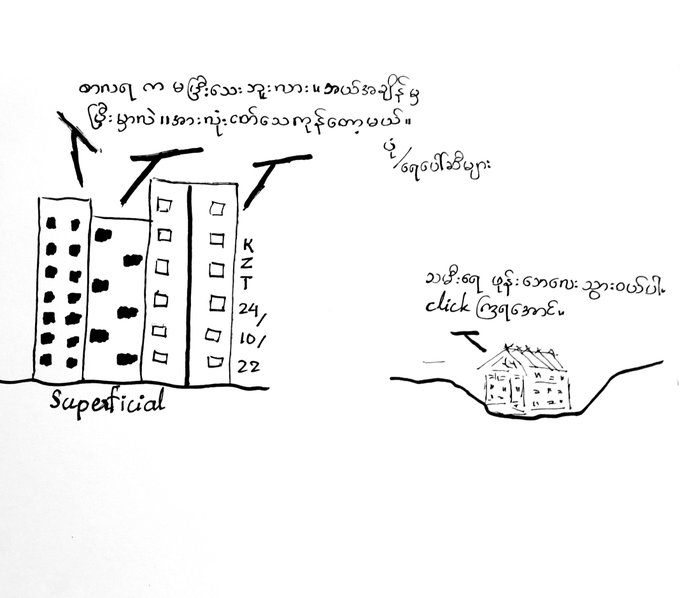 စာလရ က မပြီးသေးဘူးလား။ ဘယ်အချိန်မှ
ပြီးမှာလဲ။ အားလုံးငတ်သေကုန်တော့မယ်။
ပုံ/ရေပေါ်ဆီများ
သမီးရေ ဖုန်းဘေလေးသွားဝယ်ပါ။
click ကြရအောင်။
K
Z
T
24/
10/
22
Superficial